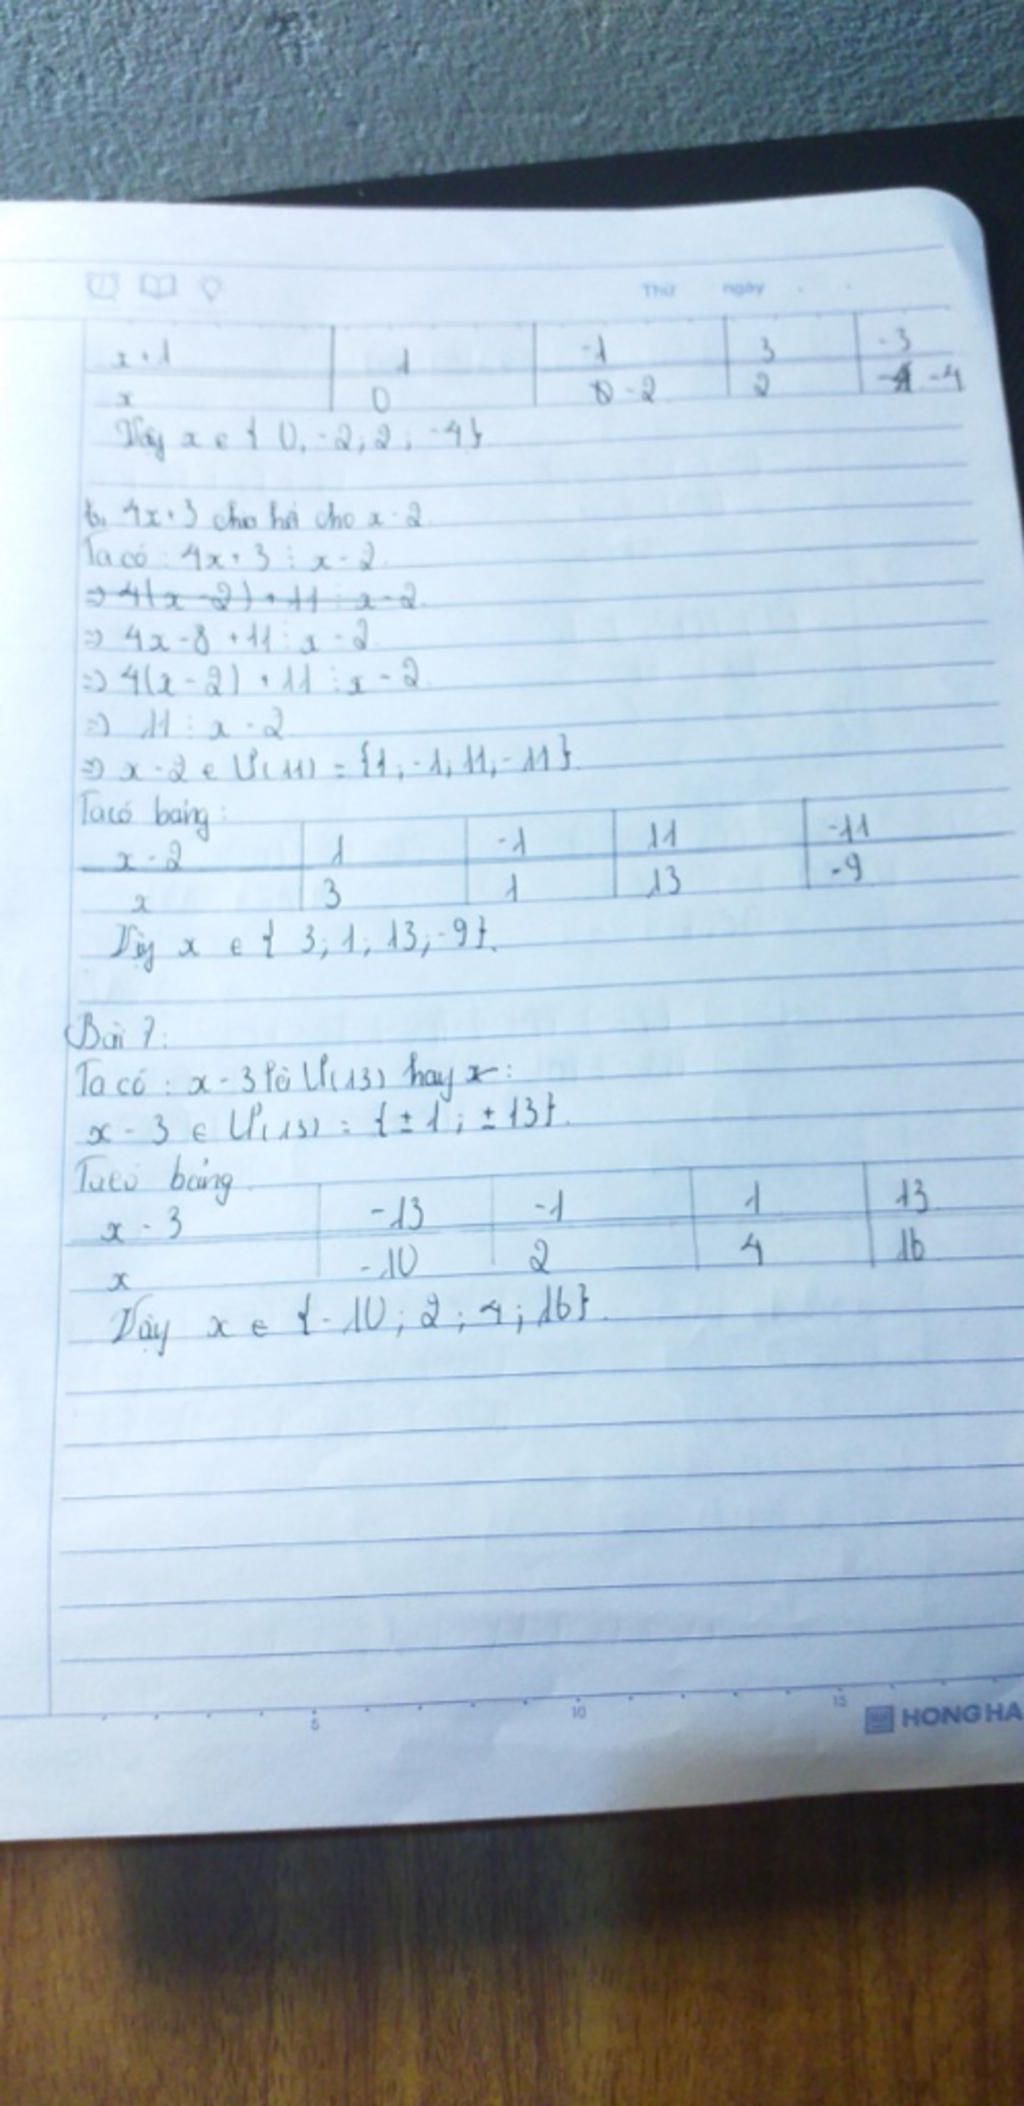 Thứ ngày
x+1 1 -1 3 -3
x 0 -2 2 -4
Vậy x ∈ { 0, -2; 2; -4}
b, 4x+3 chia hết cho x-2
Ta có: 4x+3 ⋮ x-2
=> 4(x-2)+11 ⋮ x-2
=> 4x-8+11 ⋮ x-2
=> 4(x-2)+11 ⋮ x-2
=> 11 ⋮ x-2
=> x-2 ∈ Ư(11) = {1; -1; 11; -11}
Ta có bảng:
x-2 1 -1 11 -11
x 3 1 13 -9
Vậy x ∈ { 3; 1; 13; -9}.
Bài 7:
Ta có: x-3 là Ư(13) hay x:
x-3 ∈ Ư(13) = {±1; ±13}.
Ta có bảng
x-3 -13 -1 1 13
x -10 2 4 16
Vậy x ∈ {-10; 2; 4; 16}.
5 10 15
HONG HA